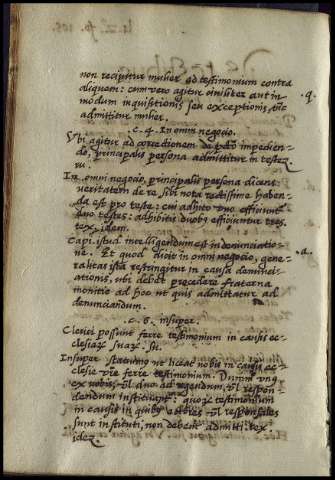 non recipitur mulier ad testimonium contra
aliquem: cum vero agitur civiliter aut in
modum inquisitionis seu exceptionis, tūc
admittitur mulier.
.c. 4. In omni negocio.
Ubi agitur ad correctionem de impedien-
do, principalis persona admittitur in testez
In omni negocio, principalis persona dicens
veritatem de re sibi nota rectissime haben-
da est pro teste: cui adhito uno efficiunt
duo testes: adhibitis duobꝫ efficiuntur tres.
tex, idem.
Capi. istud intelligendum est in denunciatio-
ne. Et quod dicit in omni negocio, gene-
ralitas ista restringitur in causa denunci-
ationis, ubi debet precedere fraterna
monitio ad hoc ut quis admittatur ad
denunciandum.
.c. 6. insuper.
Clerici possunt ferre testimonium in causis ec-
clesiaꝝ suaꝝ.
Insuper statuimo ut liceat nobis in causis ec-
clesie vre ferre testimonium. Dum
ex vobis, vl duo ad agendum, vl respon-
dendum instituantur: quoꝝ testimonium
in causis in quibꝫ vl responsales
sunt instituti, non debent admitti. tex.
idez.
.q.
.a.